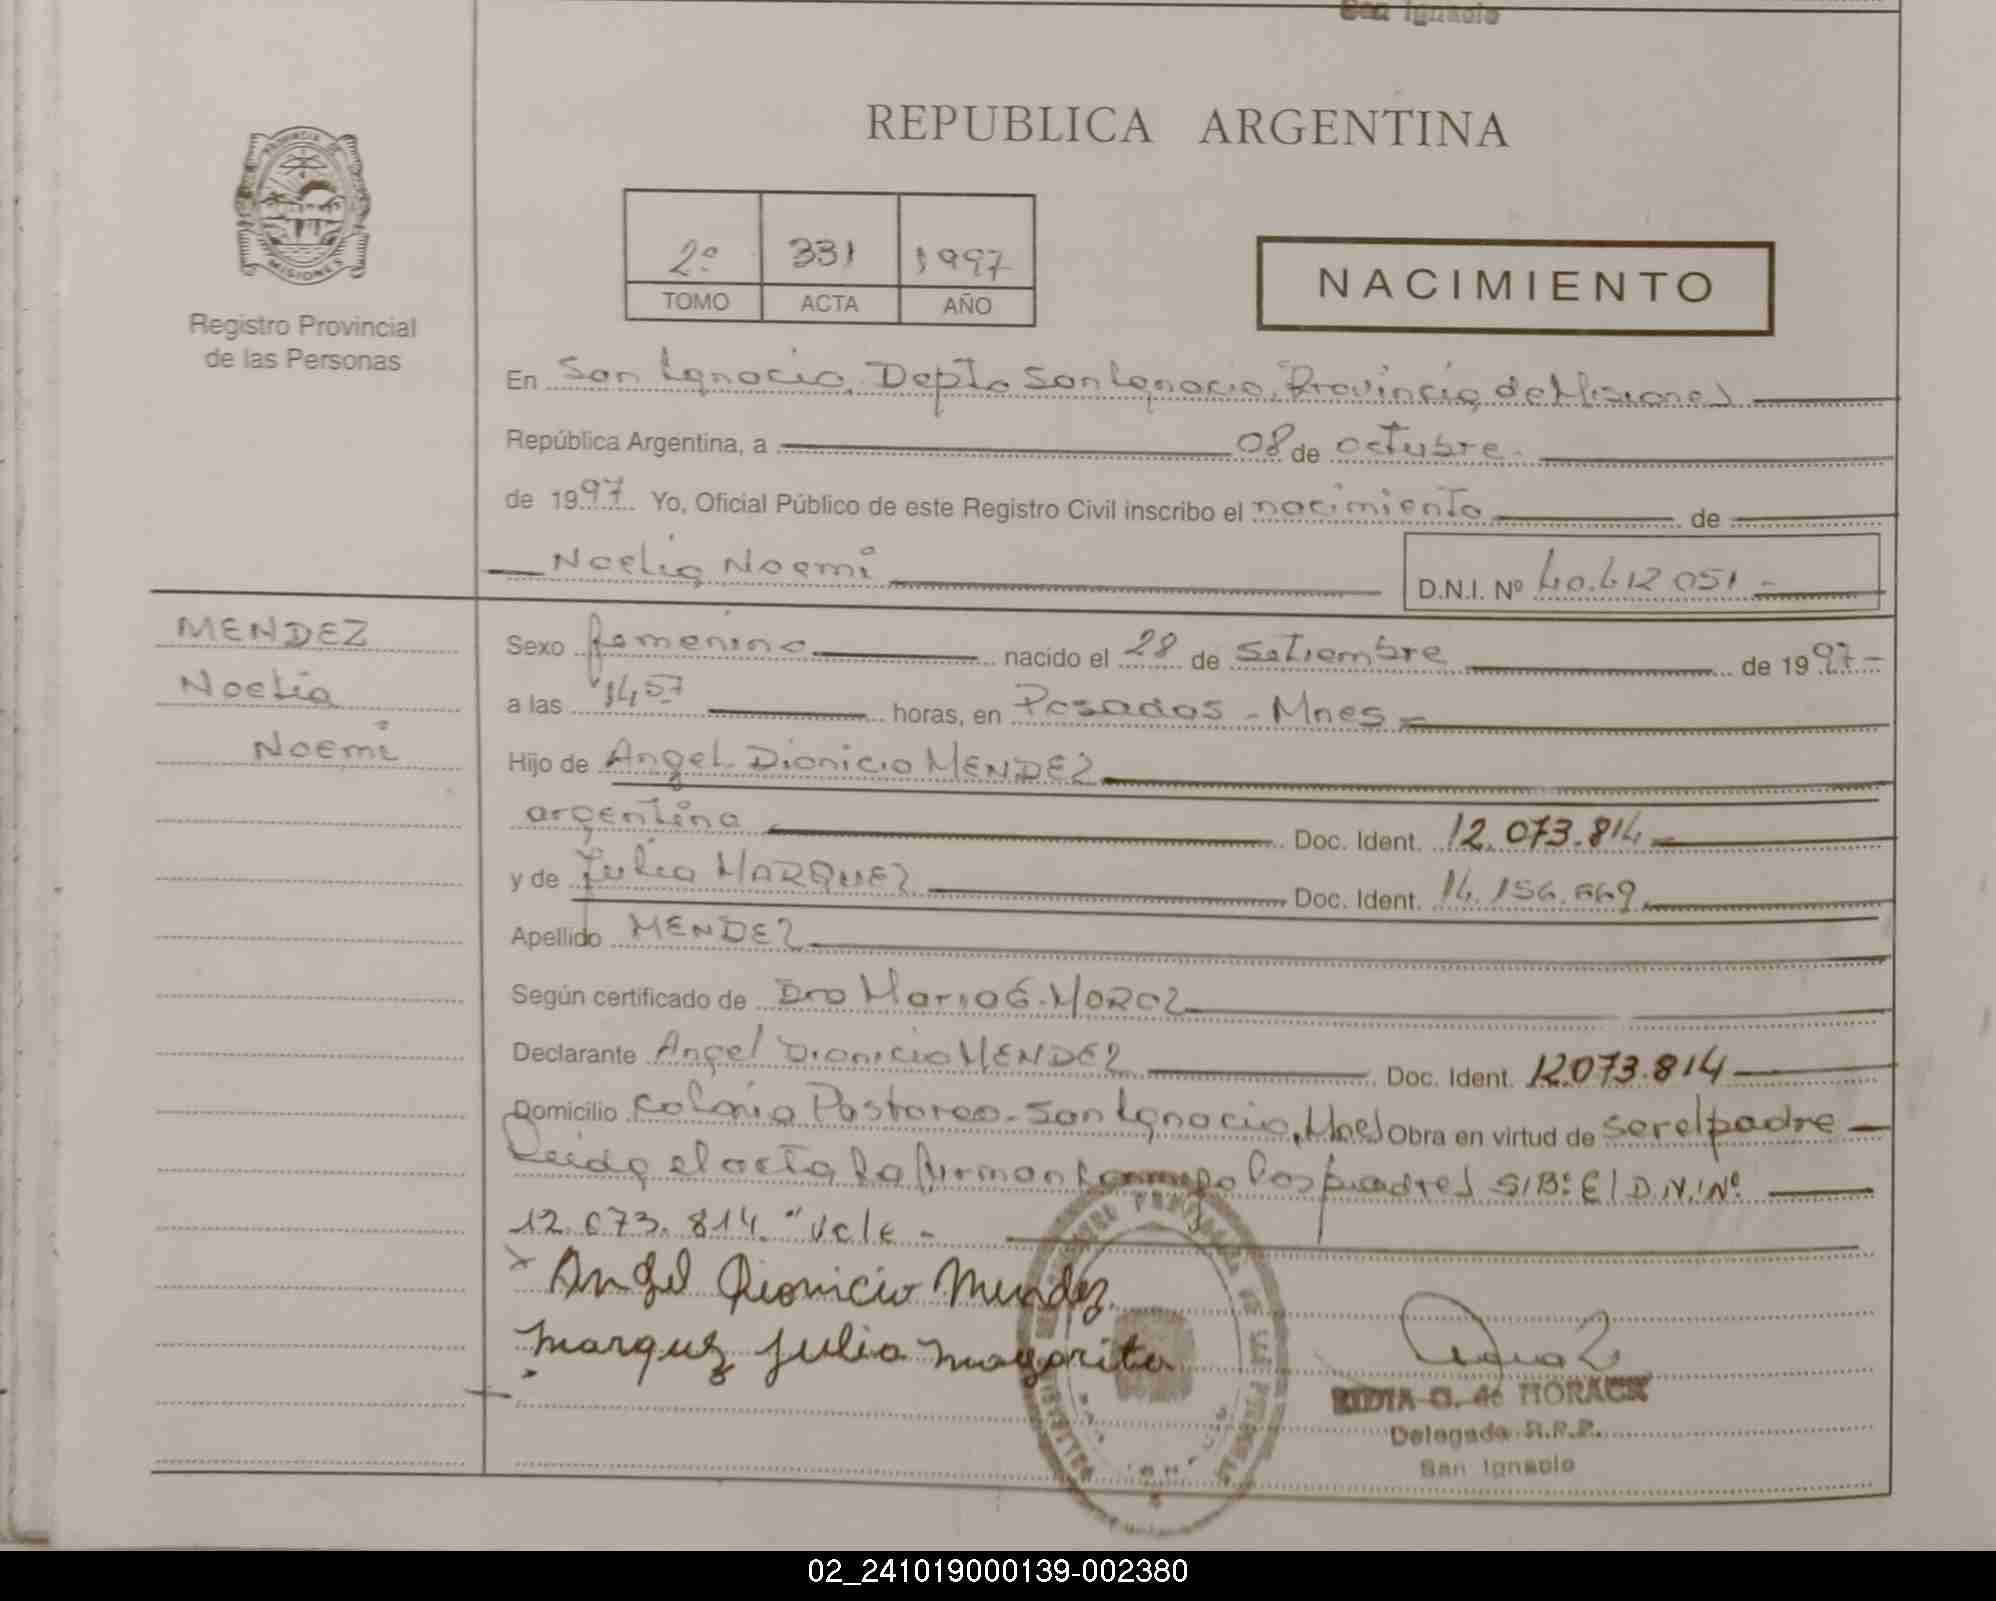 San Ignacio
REPUBLICA ARGENTINA
PROVINCIA DE
MISIONES
Registro Provincial
de las Personas
2º 331 1997
TOMO ACTA AÑO
NACIMIENTO
En San Ignacio, Depto San Ignacio, Provincia de Misiones
República Argentina, a 08 de octubre
de 1997. Yo, Oficial Público de este Registro Civil inscribo el nacimiento de
Noelia Noemi
D.N.I. Nº 40.412 051 -
MENDEZ
Noelia
Noemi
Sexo femenino nacido el 28 de Setiembre de 1997-
a las 14,57 horas, en Posadas - Mnes -
Hijo de Angel Dionicio MENDEZ
argentina Doc. Ident. 12.073.814
y de Julia MARQUEZ Doc. Ident. 14.156.669
Apellido MENDEZ
Según certificado de Dra Maria G. MOROZ
Declarante Angel Dionicio MENDEZ Doc. Ident. 12.073.814
Domicilio Colonia Pastoreo - San Ignacio, Mnes Obra en virtud de ser el padre
Leida el acta la firman conmigo los padres S/Bº E/ D.N.I Nº
12.073.814. "Vale -
x Angel Dionicio Mendez
Marquez Julia Margarita
de HORACK
Delegada R.P.P.
San Ignacio
02_241019000139-002380